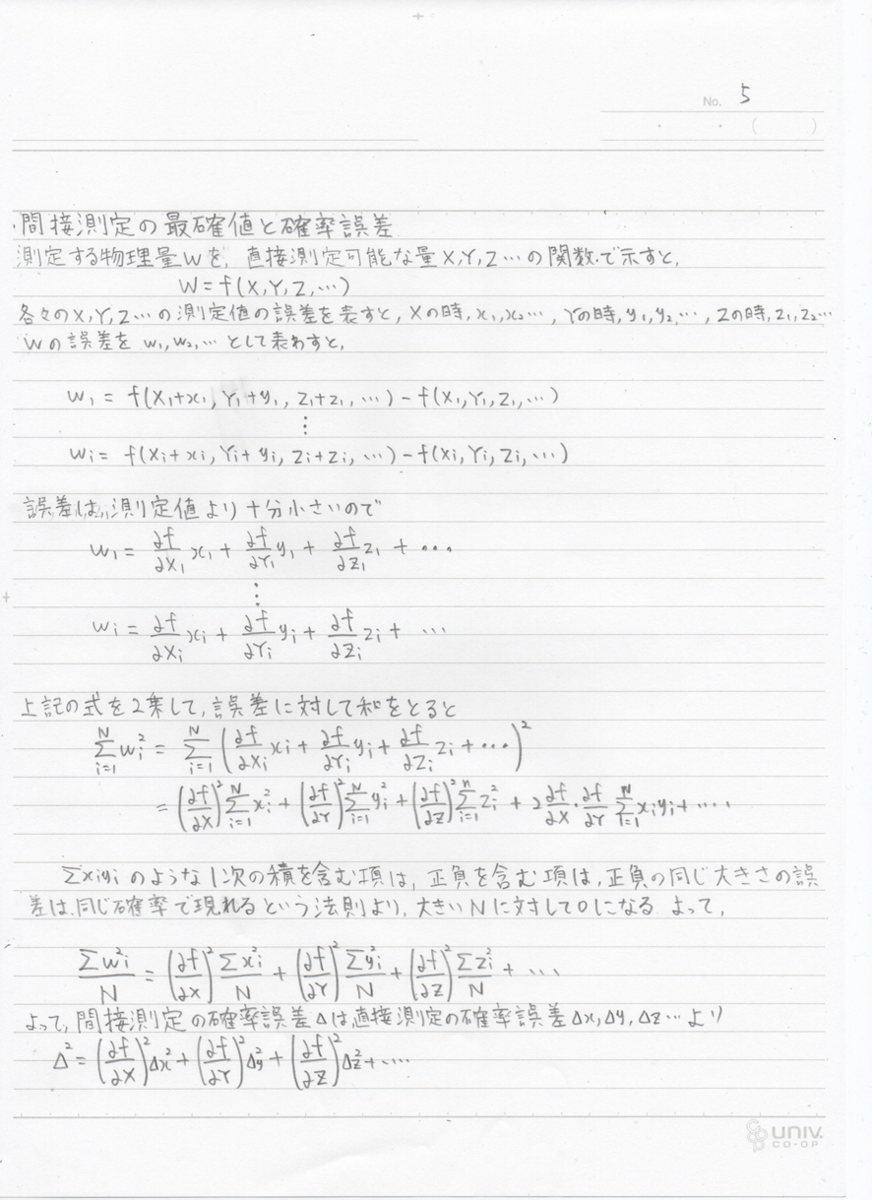 No. 5
・ ・ ( )
・間接測定の最確値と確率誤差
測定する物理量Wを, 直接測定可能な量X,Y,Z…の関数で示すと,
W=f(X,Y,Z,…)
各々のX,Y,Z…の測定値の誤差を表すと, Xの時,x₁,x₂…, Yの時,y₁,y₂,…, Zの時,z₁,z₂…
Wの誤差を w₁,w₂,… として表わすと,
w₁ = f(X₁+x₁, Y₁+y₁, Z₁+z₁, …) - f(X₁,Y₁,Z₁,…)
⋮
wᵢ = f(Xᵢ+xᵢ, Yᵢ+yᵢ, Zᵢ+zᵢ, …) - f(Xᵢ,Yᵢ,Zᵢ,…)
誤差は,測定値より十分小さいので
w₁ = ∂f/∂X₁ x₁ + ∂f/∂Y₁ y₁ + ∂f/∂Z₁ z₁ + …
⋮
wᵢ = ∂f/∂Xᵢ xᵢ + ∂f/∂Yᵢ yᵢ + ∂f/∂Zᵢ zᵢ + …
上記の式を2乗して,誤差に対して和をとると
Σ_{i=1}^{N} wᵢ² = Σ_{i=1}^{N} (∂f/∂Xᵢ xᵢ + ∂f/∂Yᵢ yᵢ + ∂f/∂Zᵢ zᵢ + …)²
= (∂f/∂X)² Σ_{i=1}^{N} xᵢ² + (∂f/∂Y)² Σ_{i=1}^{N} yᵢ² + (∂f/∂Z)² Σ_{i=1}^{n} zᵢ² + 2 ∂f/∂X・∂f/∂Y Σ_{i=1}^{N} xᵢyᵢ + ….
Σxᵢyᵢ のような1次の積を含む項は, 正負を含む項は, 正負の同じ大きさの誤
差は,同じ確率で現れるという法則より, 大きいNに対して0になる よって,
Σwᵢ²/N = (∂f/∂X)² Σxᵢ²/N + (∂f/∂Y)² Σyᵢ²/N + (∂f/∂Z)² Σzᵢ²/N + …
よって, 間接測定の確率誤差Δは,直接測定の確率誤差Δx,Δy,Δz…より
Δ² = (∂f/∂X)² Δx² + (∂f/∂Y)² Δy² + (∂f/∂Z)² Δz² + ….
UNIV.
CO-OP